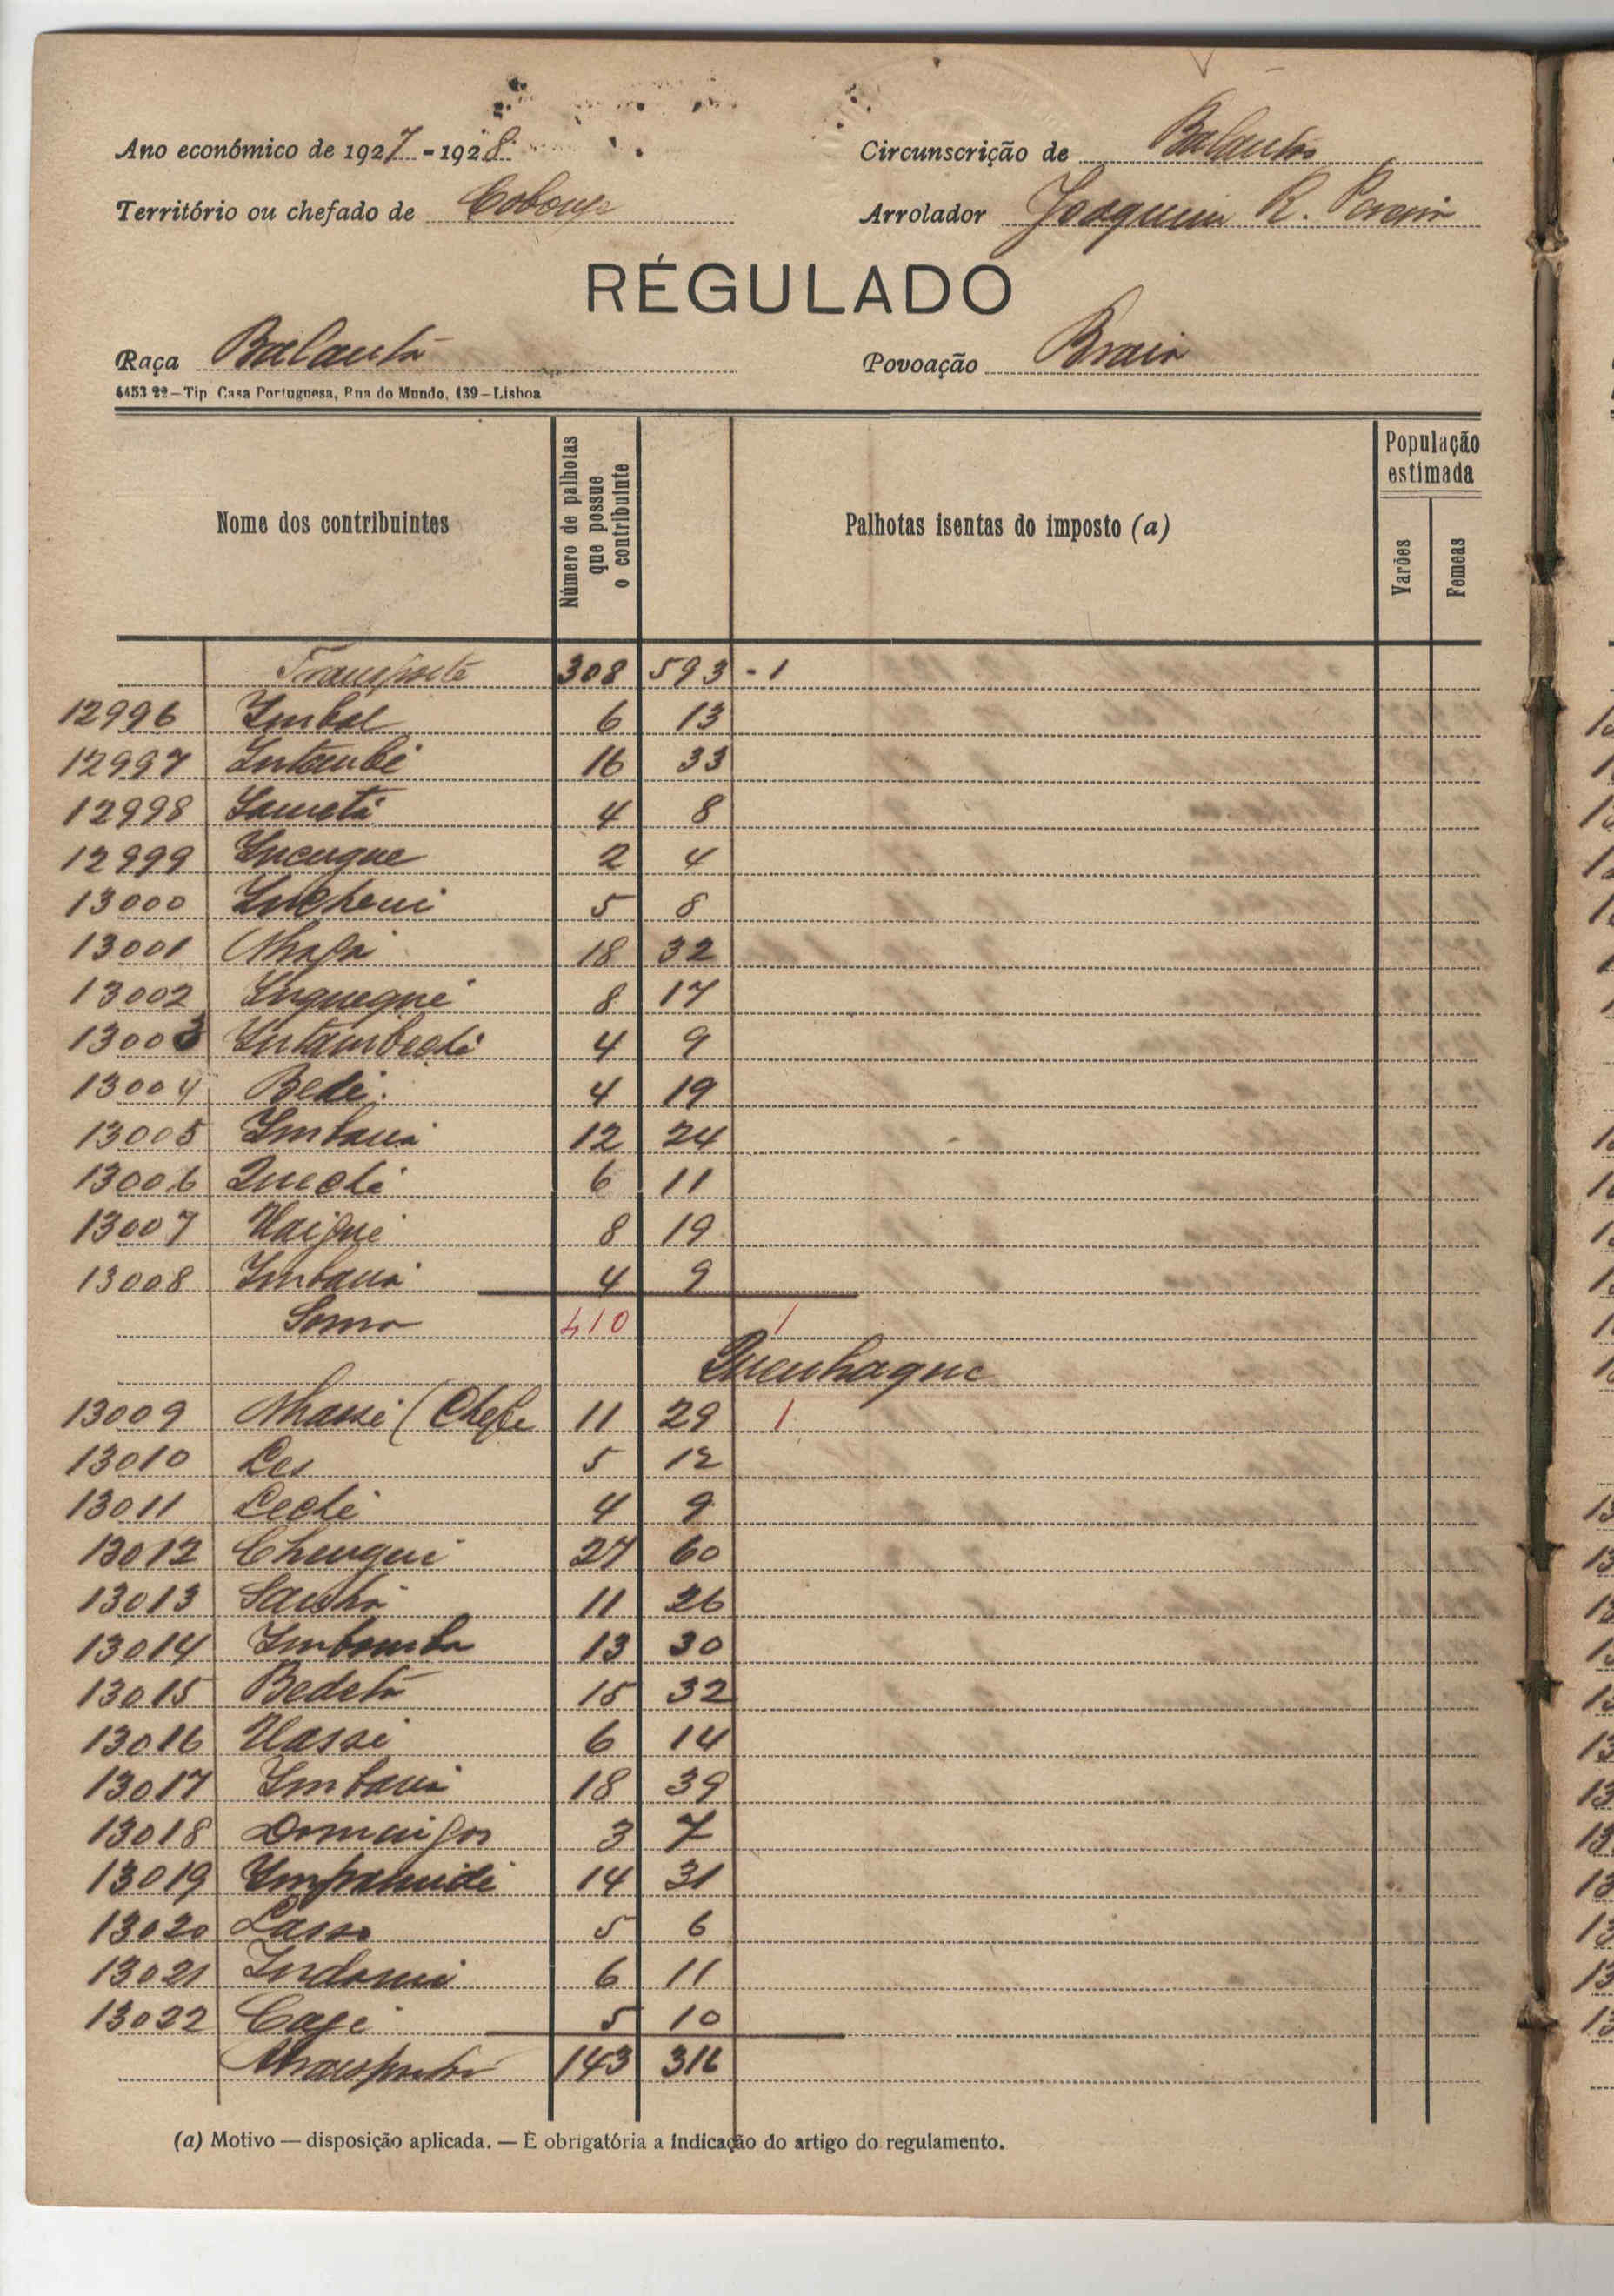 Ano económico de 1927 - 1928
Circunscrição de Balantas
Território ou chefado de
Arrolador Joaquim R. Pereira
RÉGULADO
Raça Balanta
Povoação Braia
6453 22 — Tip Casa Portuguesa, Rua do Mundo, 139 — Lisboa
Nome dos contribuintes
Número de palhotas que possue o contribuinte
Palhotas isentas do imposto (a)
População estimada
Varões
Femeas
Transporte 308 593 - 1
12996 Imbal 6 13
12997 Intambé 16 33
12998 4 8
12999 Incugue 2 4
13000 5 8
13001 18 32
13002 Inguegué 8 17
13003 4 9
13004 Bedi 4 19
13005 Imbana 12 24
13006 6 11
13007 8 19
13008 Imbana 4 9
Soma 410 1
Quenhaque
13009 Nhassé (Chefe 11 29 1
13010 5 12
13011 4 9
13012 27 60
13013 Sanhá 11 26
13014 Imbomba 13 30
13015 Bedetá 15 32
13016 18 Nassi 6 14
13017 Imbana 18 39
13018 Domingos 3 7
13019 14 31
13020 Lasso 5 6
13021 6 11
13022 5 10
Transporte 143 316
(a) Motivo — disposição aplicada. — É obrigatória a indicação do artigo do regulamento.